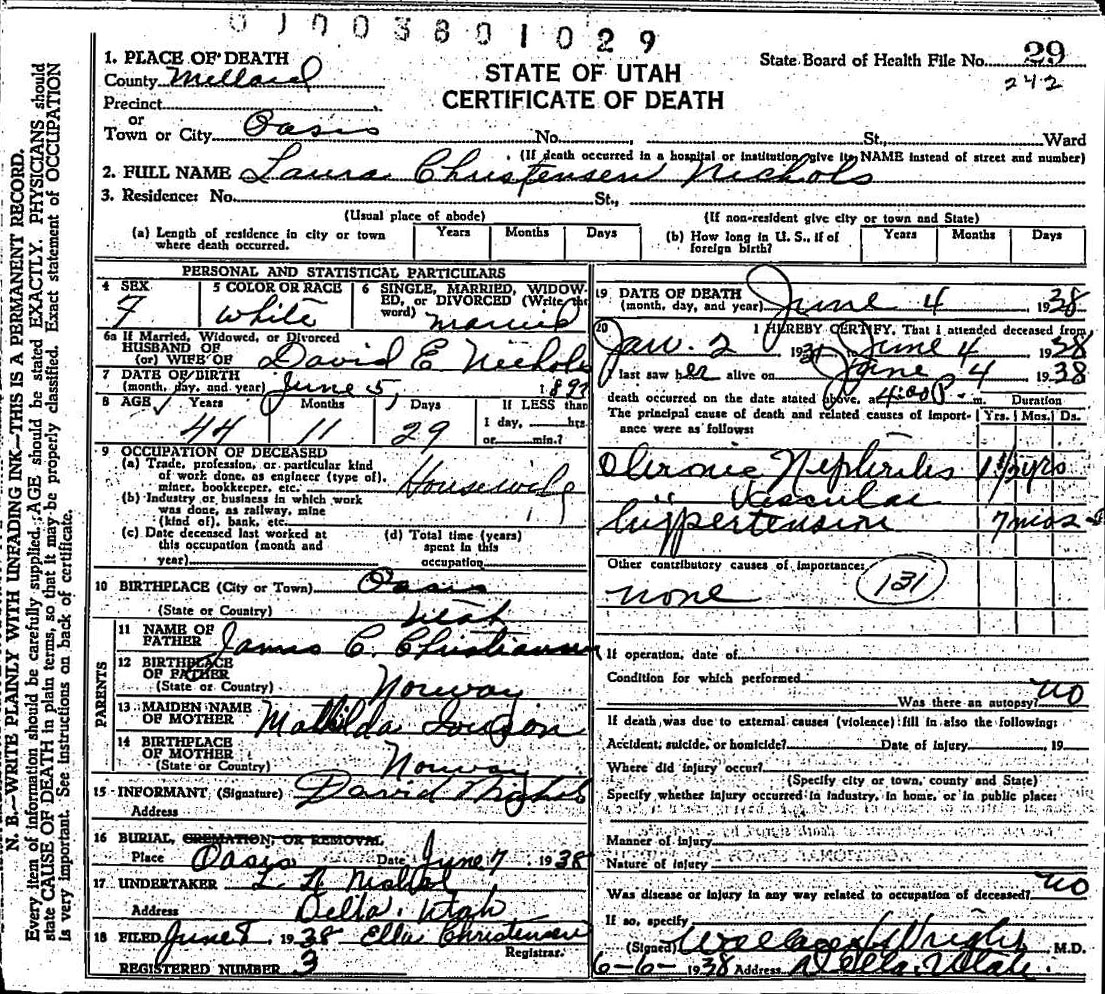 01003801029
State Board of Health File No. 29
242
STATE OF UTAH
CERTIFICATE OF DEATH
1. PLACE OF DEATH
County Millard
Precinct
or
Town or City Oasis No. St., Ward
(If death occurred in a hospital or institution, give its NAME instead of street and number)
2. FULL NAME Laura Christensen Nichols
3. Residence: No. St.,
(Usual place of abode) (If non-resident give city or town and State)
(a) Length of residence in city or town where death occurred. Years Months Days
(b) How long in U. S., if of foreign birth? Years Months Days
PERSONAL AND STATISTICAL PARTICULARS
4 SEX 5 COLOR OR RACE 6 SINGLE, MARRIED, WIDOW-
ED, or DIVORCED (Write the
word)
F White Married
6a If Married, Widowed, or Divorced
HUSBAND OF
(or) WIFE OF David E Nichols
7 DATE OF BIRTH
(month, day, and year) June 5, 189
8 AGE Years Months Days If LESS than
1 day, hrs.
or min.?
44 11 29
9 OCCUPATION OF DECEASED
(a) Trade, profession, or particular kind
of work done, as engineer (type of),
miner, bookkeeper, etc. Housewife
(b) Industry or business in which work
was done, as railway, mine
(kind of), bank, etc. ,, 
(c) Date deceased last worked at
this occupation (month and
year)
(d) Total time (years)
spent in this
occupation
10 BIRTHPLACE (City or Town) Oasis
(State or Country) Utah
PARENTS
11 NAME OF
FATHER James C. Christiansen
12 BIRTHPLACE
OF FATHER
(State or Country) Norway
13 MAIDEN NAME
OF MOTHER Mathilda
14 BIRTHPLACE
OF MOTHER
(State or Country) Norway
15 INFORMANT (Signature) David Nichols
Address
16 BURIAL, CREMATION, OR REMOVAL
Place Oasis Date June 7, 1938
17 UNDERTAKER L N
Address Delta, Utah
18 FILED June 8 1938 Ella Christensen
Registrar.
REGISTERED NUMBER 3
19 DATE OF DEATH
(month, day, and year) June 4 1938
20 I HEREBY CERTIFY, That I attended deceased from
Jan. 2 193 to June 4 1938
I last saw her alive on June 4 1938
death occurred on the date stated above, at 4:00 P. m. Duration
The principal cause of death and related causes of import-
ance were as follows: Yrs. Mos. Ds.
Chronic Nephritis 1 1/2 yrs
Vascular
hyppertension 7 mos
Other contributory causes of importance:
none 131
If operation, date of
Condition for which performed
Was there an autopsy? no
If death was due to external causes (violence) fill in also the following:
Accident, suicide, or homicide? Date of injury , 19
Where did injury occur?
(Specify city or town, county and State)
Specify whether injury occurred in industry, in home, or in public place:
Manner of injury
Nature of injury
Was disease or injury in any way related to occupation of deceased? no
If so, specify
(Signed) Wright M.D.
6-6- 1938 Address Delta, Utah.
N. B.—WRITE PLAINLY WITH UNFADING INK—THIS IS A PERMANENT RECORD.
Every item of information should be carefully supplied. AGE should be stated EXACTLY. PHYSICIANS should
state CAUSE OF DEATH in plain terms, so that it may be properly classified. Exact statement of OCCUPATION
is very important. See instructions on back of certificate.